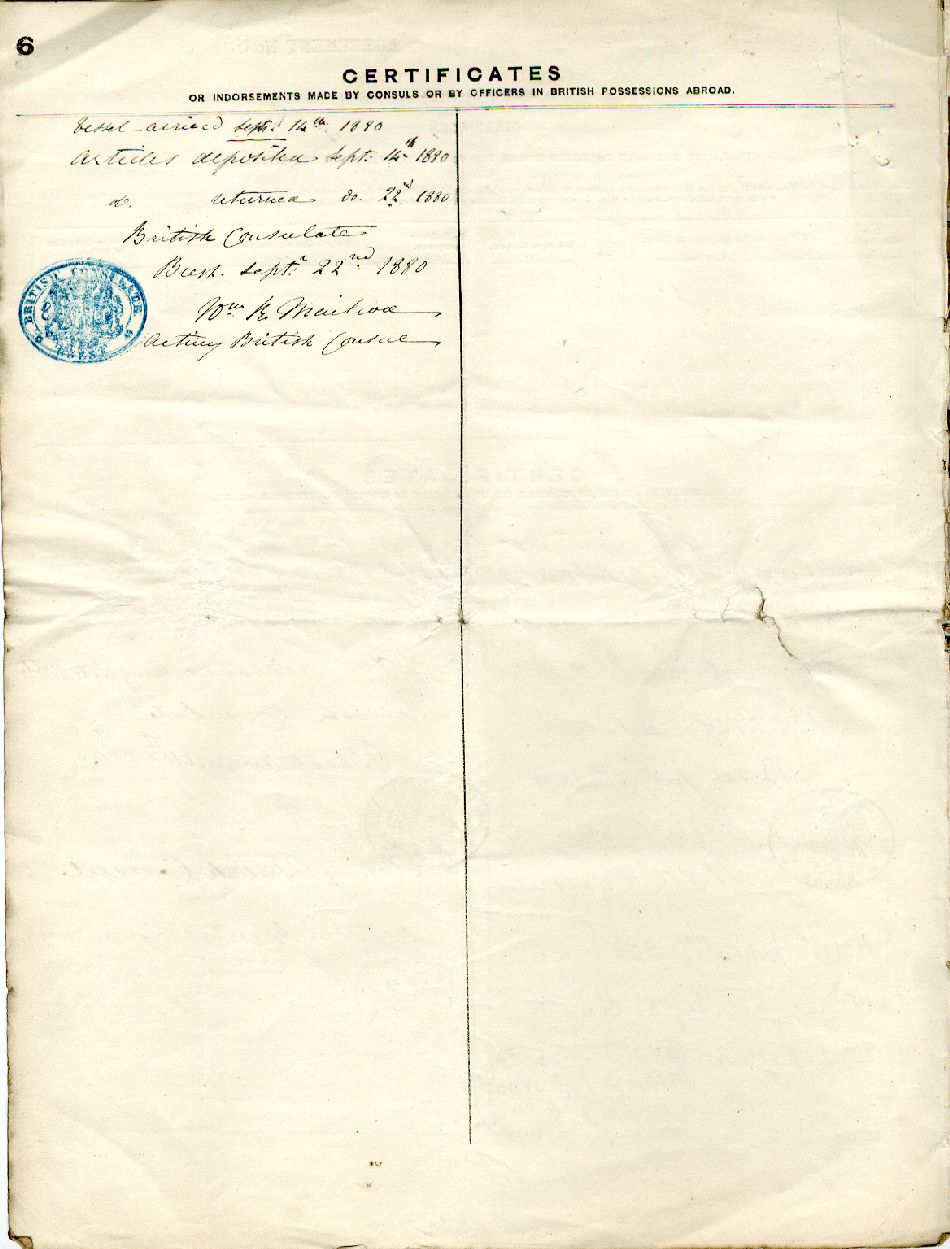 6
CERTIFICATES
OR INDORSEMENTS MADE BY CONSULS OR BY OFFICERS IN BRITISH POSSESSIONS ABROAD.
Vessel arrived Sept. 14th 1880
Articles deposited Sept. 14th 1880
do. returned do. 22nd 1880
British Consulate
Brest. Sept. 22nd 1880
Wm. E
Acting British Consul
BRITISH CONSULATE
BREST